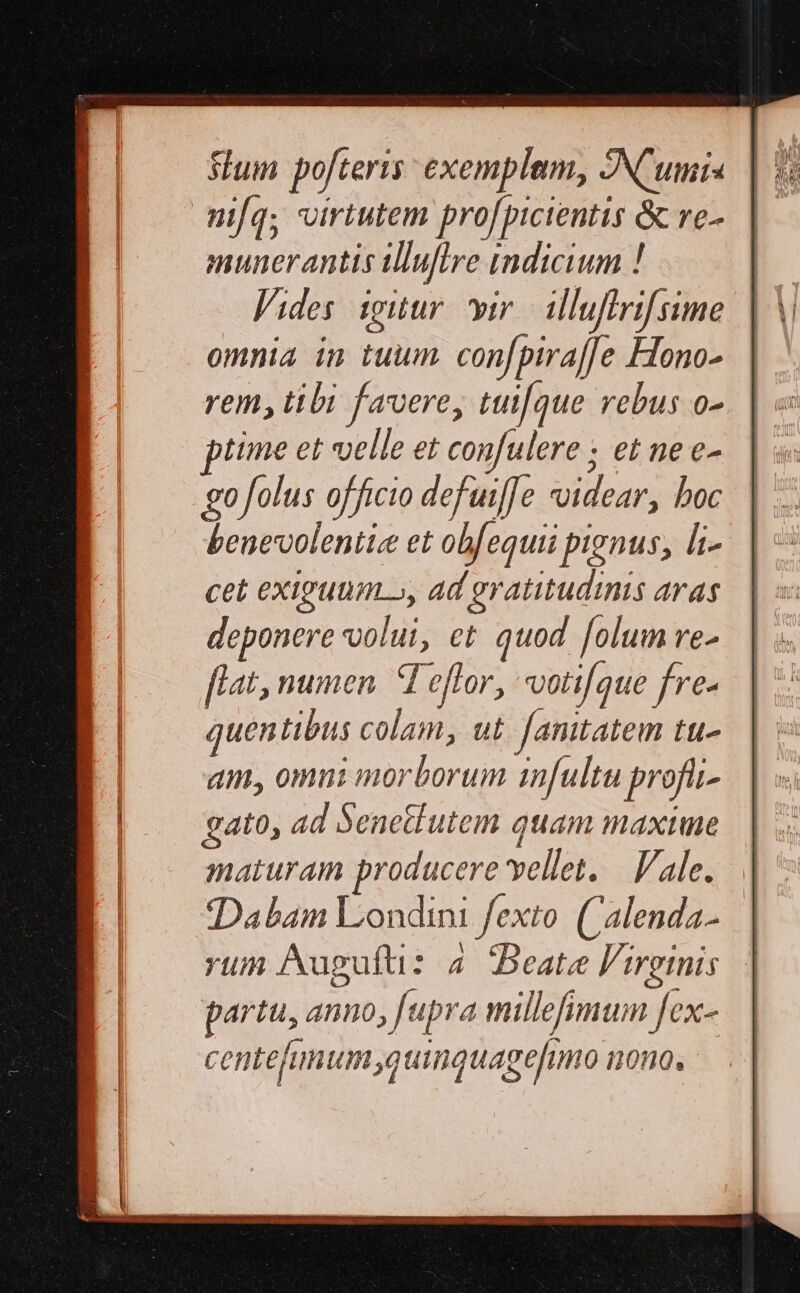 ſtum poſteris exemplum, Numi-
niſq; virtutem proſpicientis & re-
munerantis illuſtre indicium !
Vides igitur vir illuſtriſsime
omnia in tuum conſpiraſſe Hono-
rem, tibi favere, tuiſque rebus o-
ptime et velle et conſulere ; et ne e-
go ſolus officio defuiſſe videar, hoc
benevolentiæ et obſequii pignus, li-
cet exiguum, ad gratitudinis aras
deponere volui, et quod ſolum re-
ſtat, numen Teſtor, votiſque fre-
quentibus colam, ut ſanitatem tu-
am, omni morborum inſultu profli-
gato, ad Senectutem quam maxime
maturam producere vellet. Vale.
Dabam Londini ſexto Calenda-
rum Auguſti: à Beatæ Virginis
partu, anno, ſupra milleſimum ſex-
centeſimum, quinquageſimo nono.